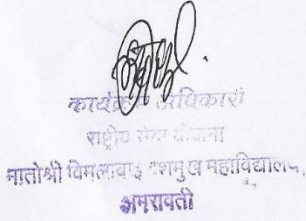 कार्यक्रम अधिकारी
राष्ट्रीय सेवा योजना
मातोश्री विमलाबाई देशमुख महाविद्यालय,
अमरावती